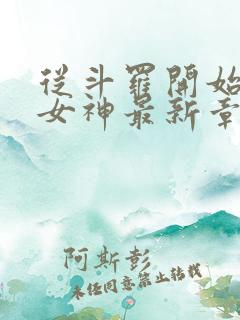 從斗羅開始
女神最新章
阿斯彭
未经同意禁止转载